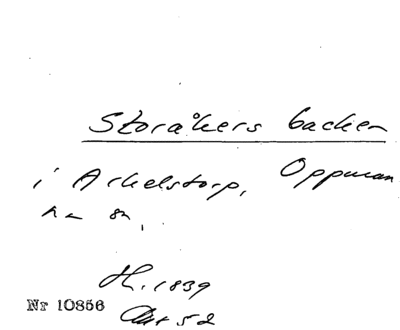 Storåkers backen
i Arkelstorp, Oppman
na sn,
H. 1839
Nr 10856
Akt 52